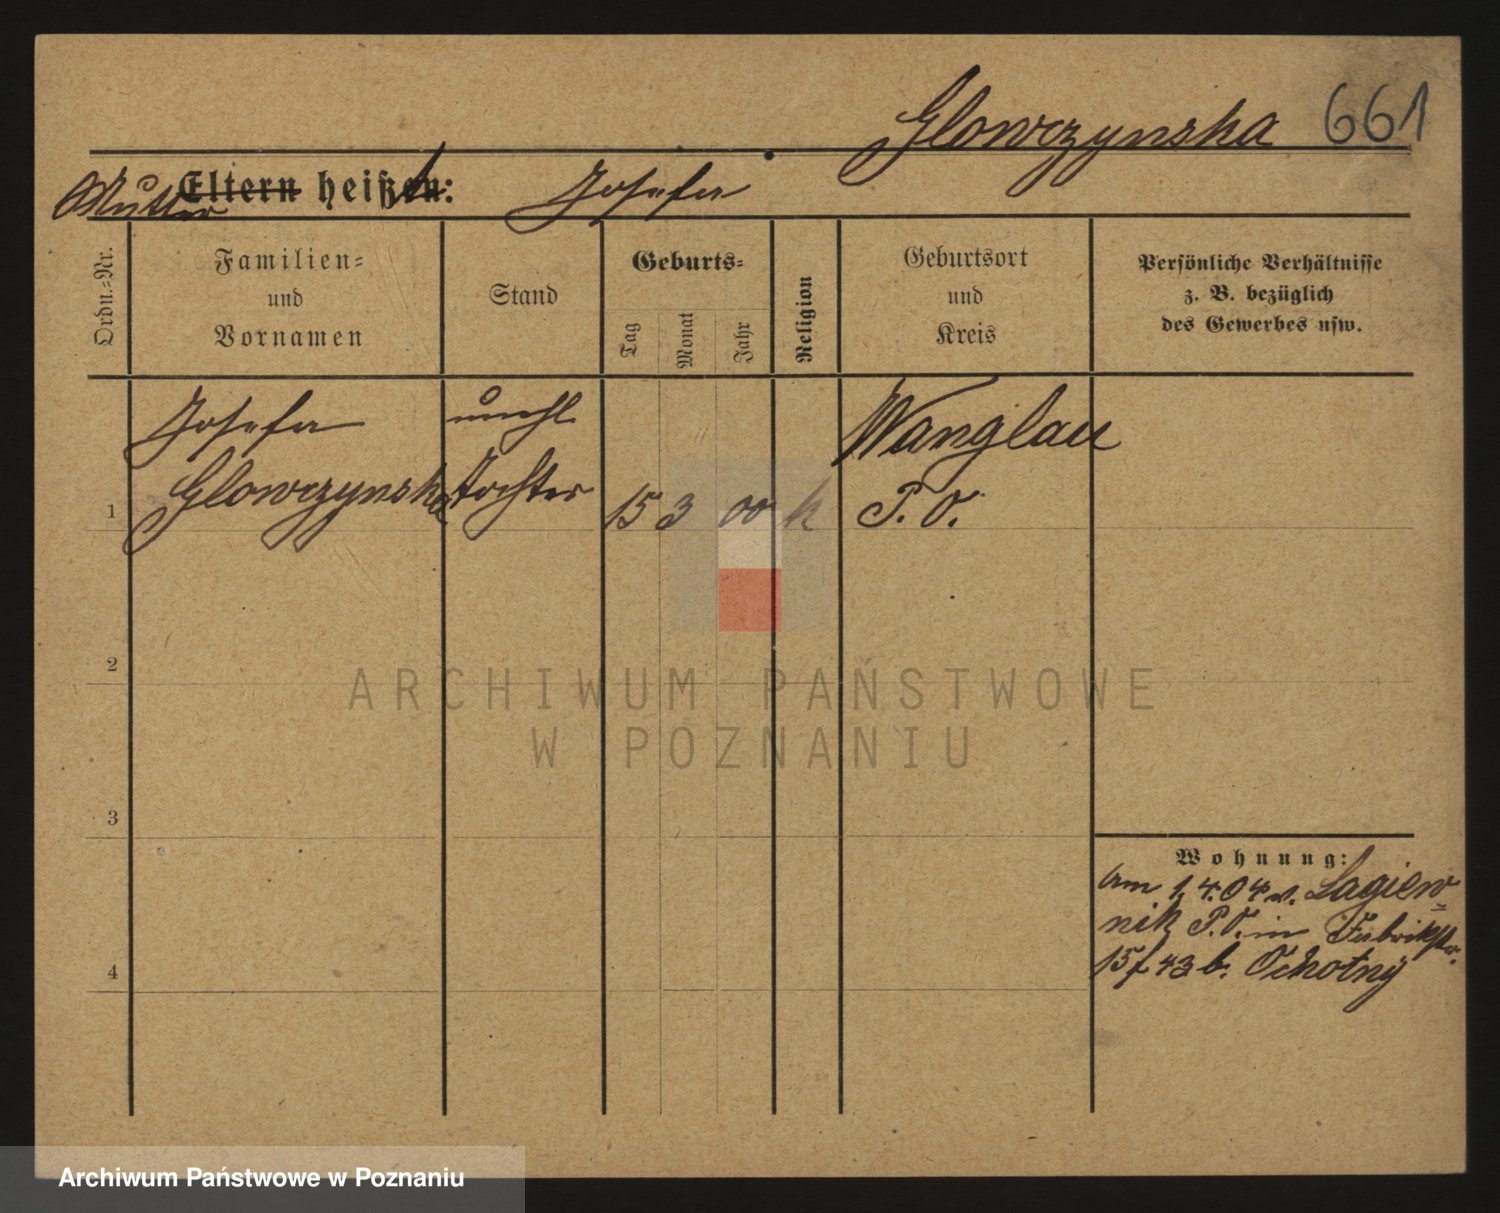 Glowczynska 661
Mutter Eltern heißen: Josefa
Ordn.-Nr.
Familien-
und
Vornamen
Stand
Geburts-
Tag
Monat
Jahr
Religion
Geburtsort
und
Kreis
Persönliche Verhältnisse
z. B. bezüglich
des Gewerbes usw.
Josefa unehl Wanglau
1 Glowczynska Tochter 15 3 00 k P. O.
2
3
4
Wohnung:
am 1.4.04 v. Lagiew-
nik P.O. in Fabrikstr.
15 f 43 b. Ochotny
ARCHIWUM PAŃSTWOWE
W POZNANIU
Archiwum Państwowe w Poznaniu